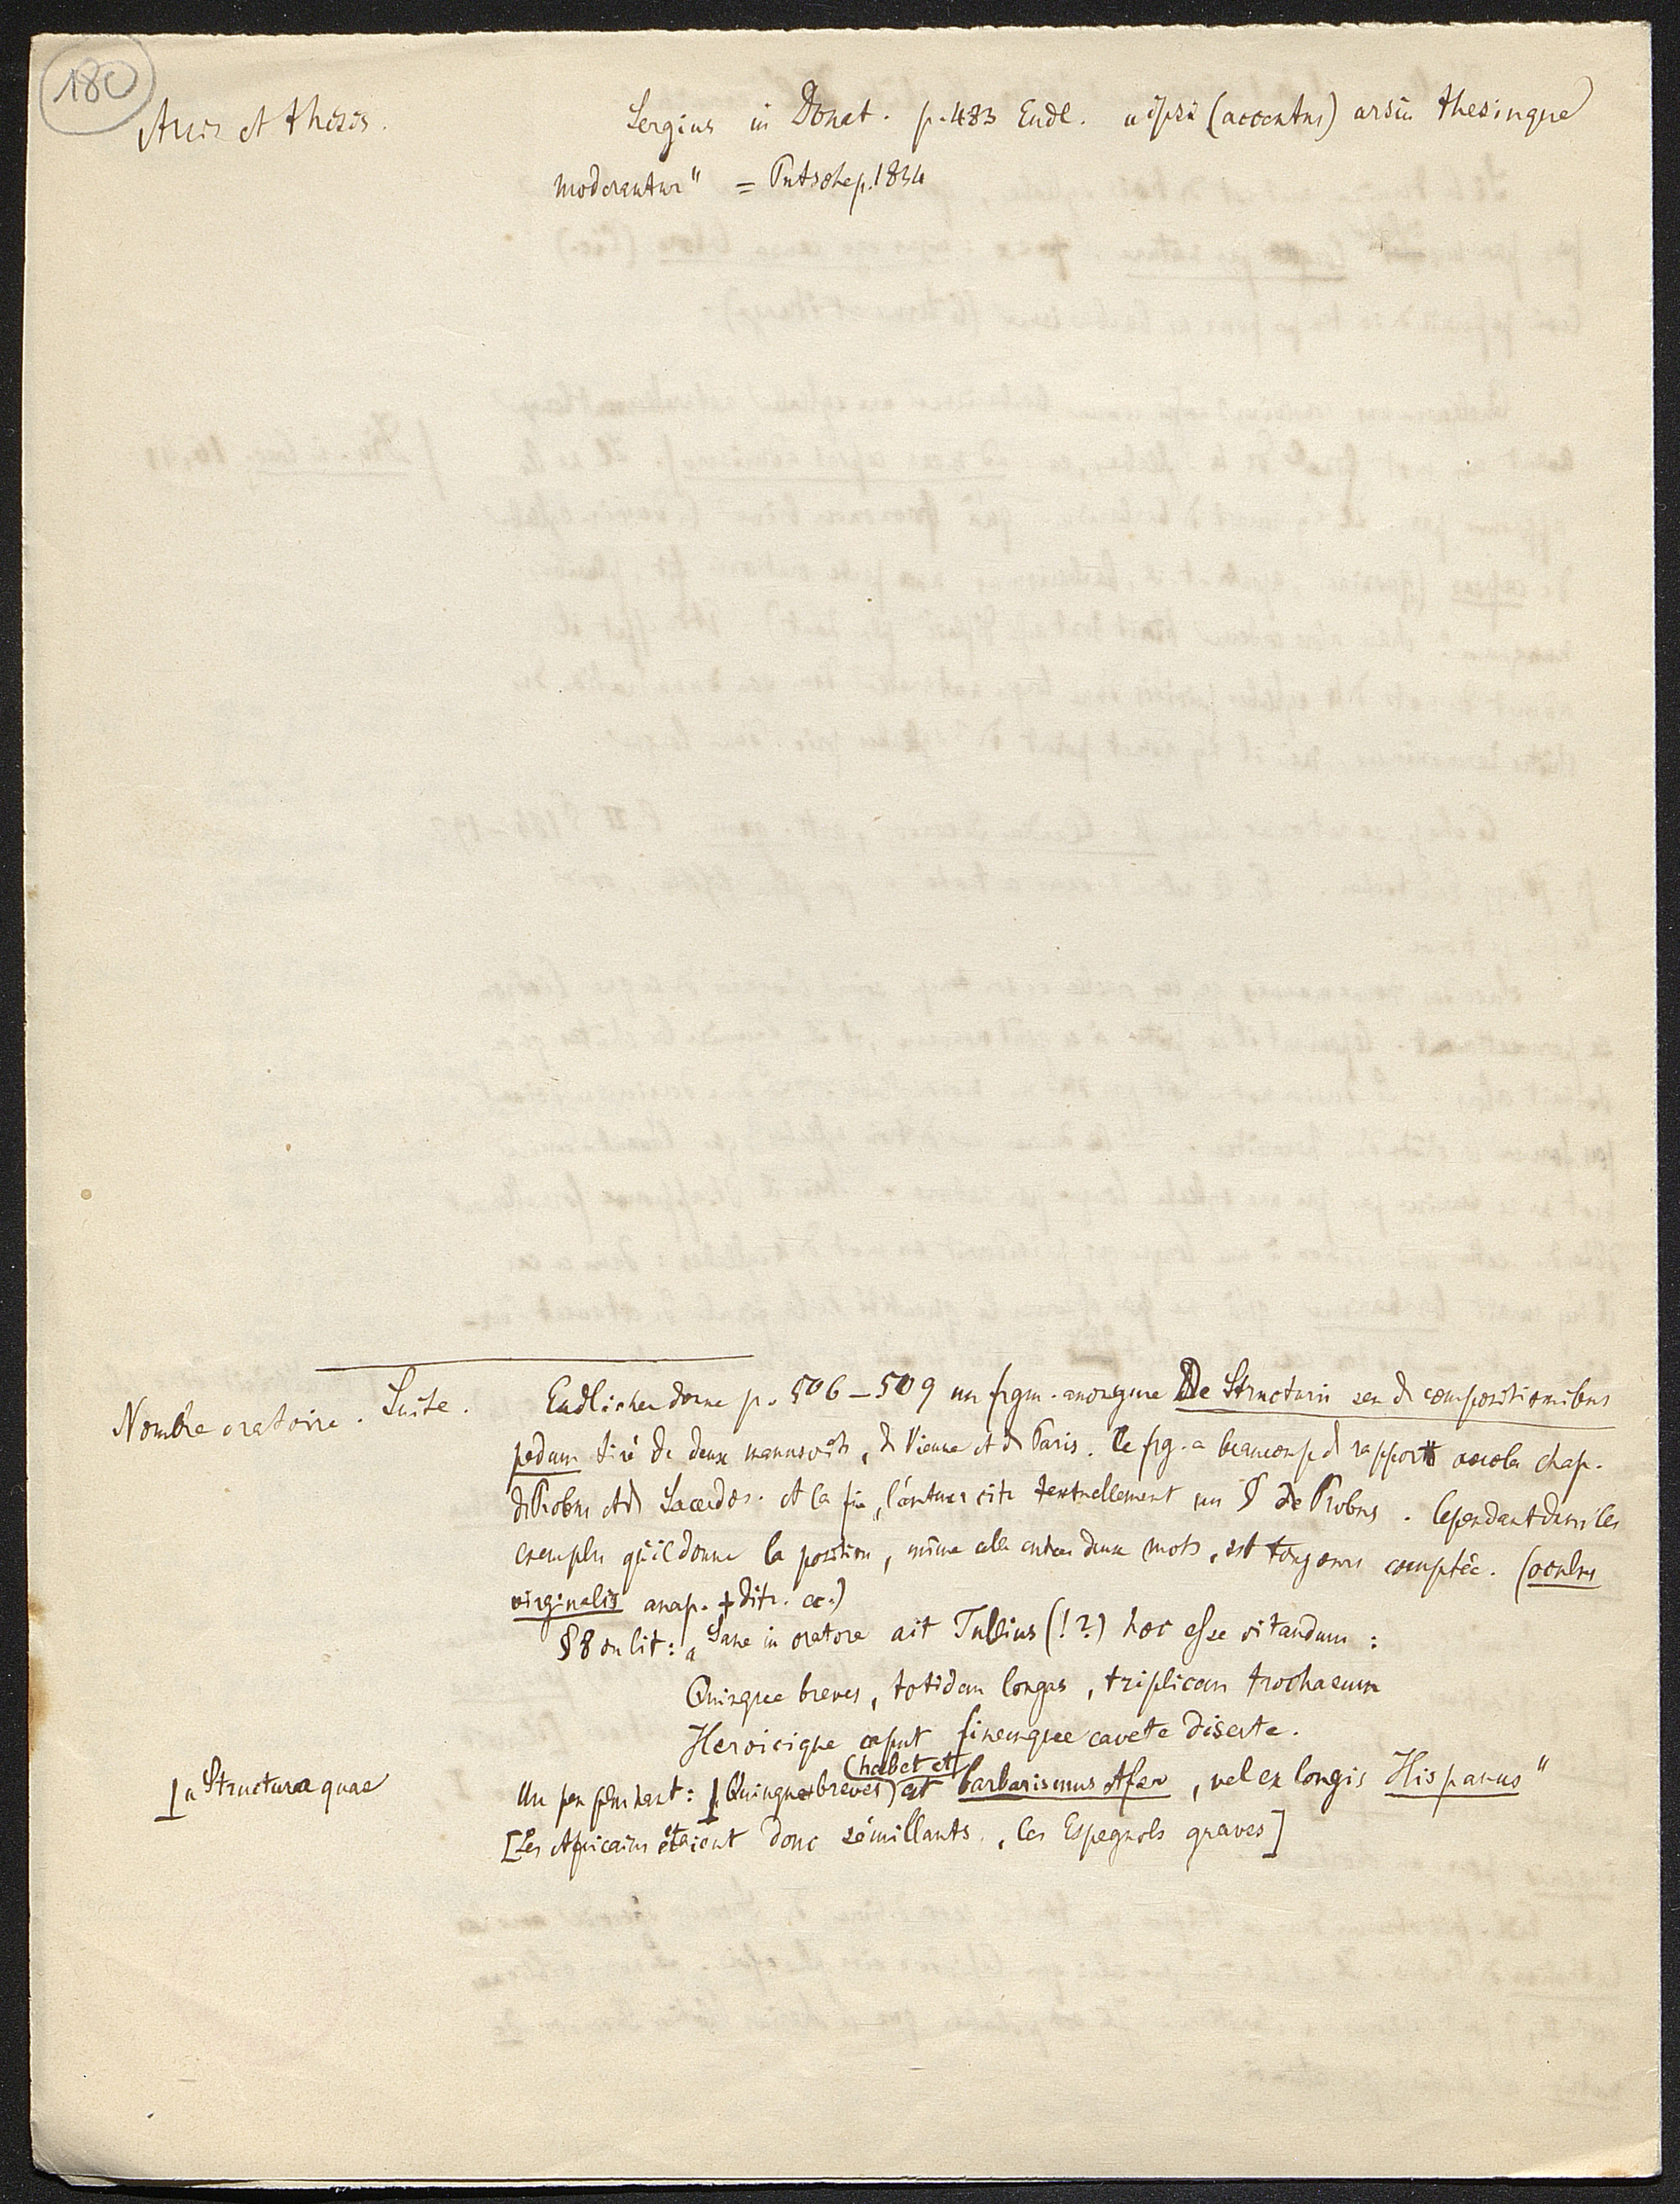 180
Arsis et thesis.
Sergius in Donat. p. 483 Endl. "ipsi (accentus) arsin thesinque
moderantur" = Putsche p. 1834
Nombre oratoire. Suite.
Endlicher donne p. 506–509 un frgm. anonyme De Structuris seu de compositionibus
pedum tiré de deux manuscrits, de Vienne et de Paris. Ce frg. a beaucoup de rapport avec le chap.
de Probus et de Sacerdos. A la fin, l'auteur cite textuellement un § de Probus. Cependant dans les
exemples qu'il donne la position, même celle entre deux mots, est toujours comptée. (oculus
virginalis anap. + ditr. cc.)
§ 8 on lit: "Sane in oratore ait Tullius (!?) hoc esse vitandum:
Quinque breves, totidem longas, triplicem trochaeum
Heroicique caput finemque cavete diserte.
"Structura quae
(habet et)
Un peu plus haut: Quinque breves) at barbarismus Afer, vel ex longis Hispanus"
[Les Africains étaient donc sémillants, les Espagnols graves]